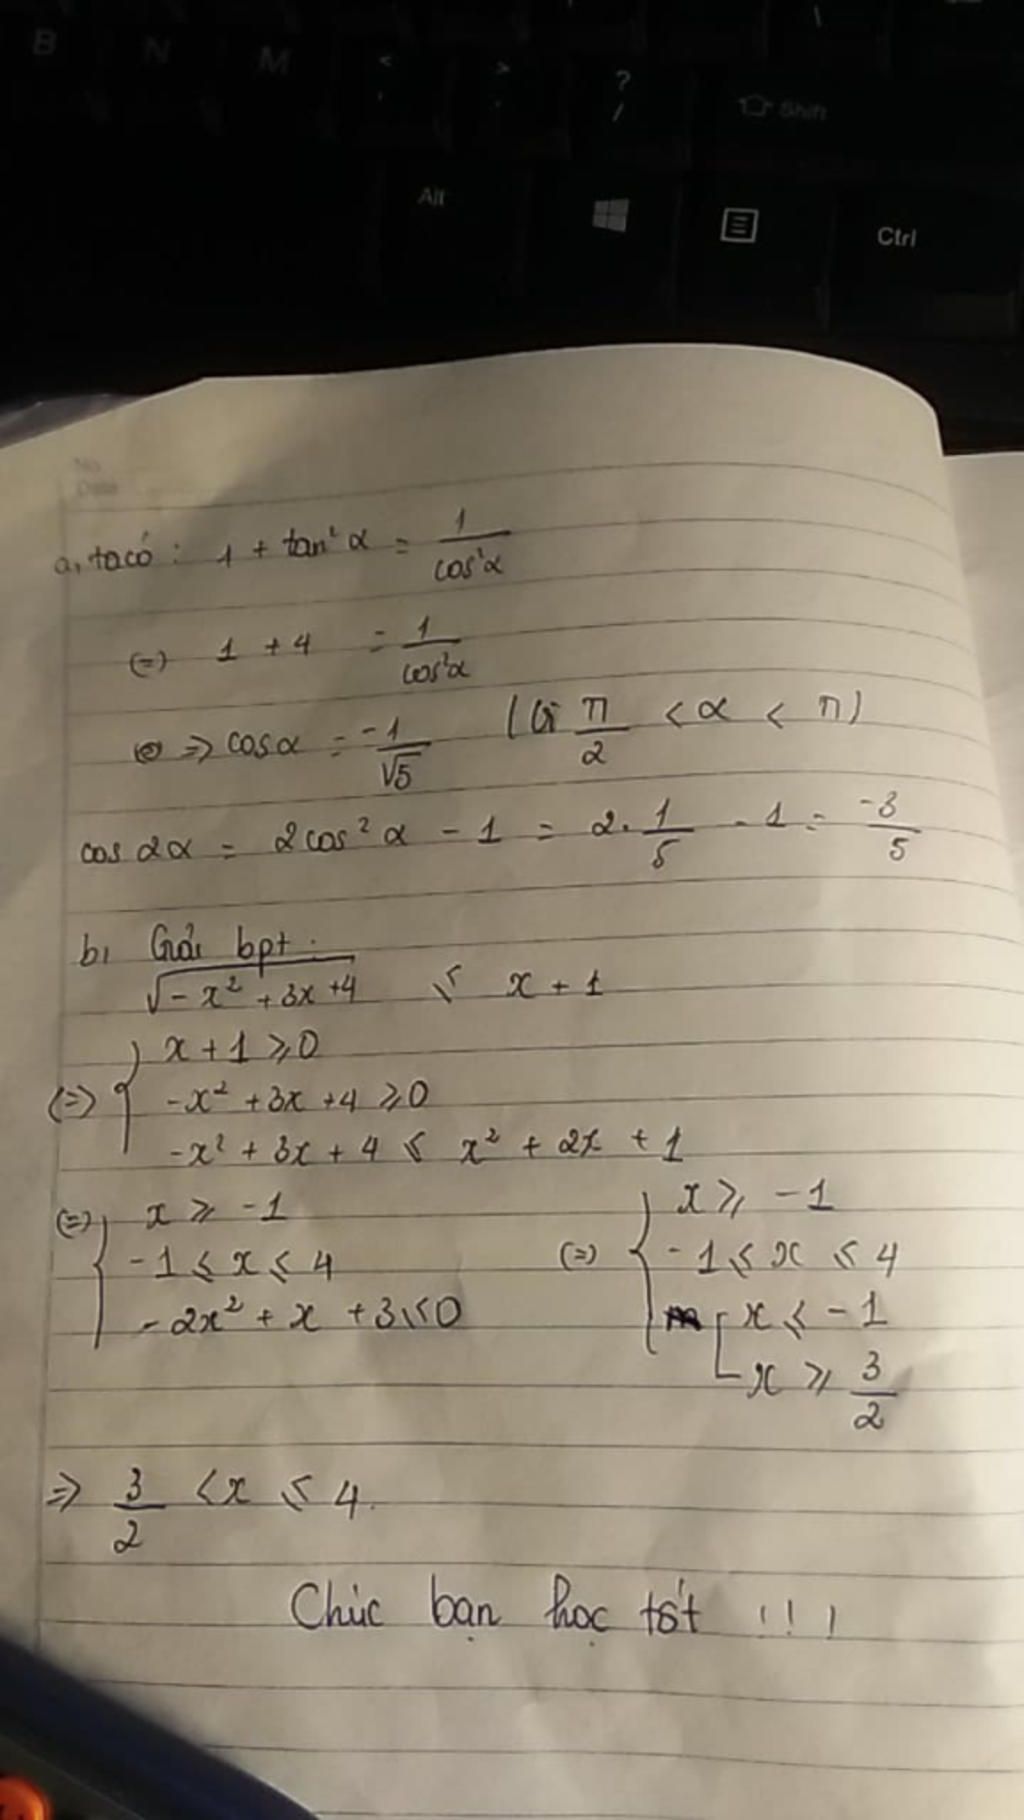 B N M < , > . ? / \ Shift
Alt Ctrl
No.
Date
a, ta có : 1 + tan²α = 1/cos²α
(=) 1 + 4 = 1/cos²α
=> cosα = -1/√5 ( π/2 < α < π)
cos 2α = 2cos²α - 1 = 2. 1/5 - 1 = -3/5
b, Giải bpt :
√(-x² + 3x + 4) ≤ x + 1
(=) { x + 1 ≥ 0
-x² + 3x + 4 ≥ 0
-x² + 3x + 4 ≤ x² + 2x + 1
(=) { x ≥ -1
-1 ≤ x ≤ 4
-2x² + x + 3 ≤ 0
(=) { x ≥ -1
-1 ≤ x ≤ 4
[ x ≤ -1
x ≥ 3/2
=> 3/2 < x ≤ 4.
Chúc bạn học tốt !!!